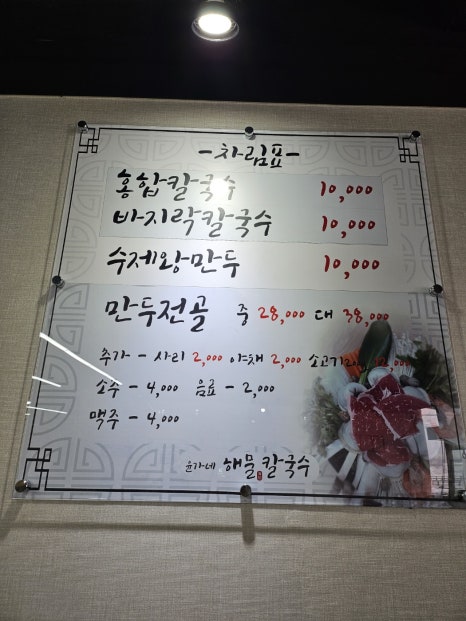 -차림표-
홍합칼국수 10,000
바지락칼국수 10,000
수제왕만두 10,000
만두전골 중 28,000 대 38,000
추가 - 사리 2,000 야채 2,000 소고기
소주 - 4,000 음료 - 2,000
맥주 - 4,000
윤가네 해물칼국수